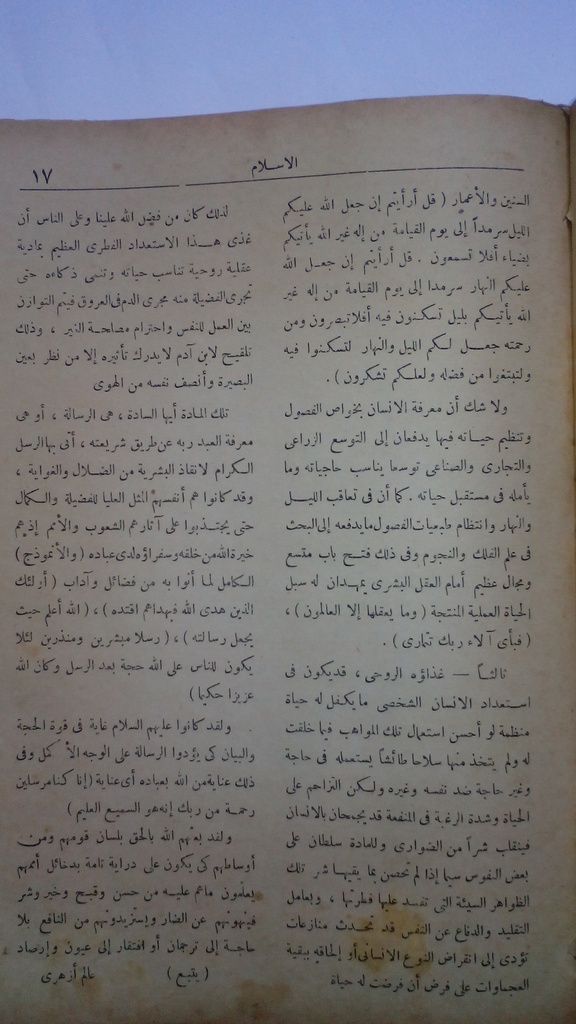 الاسلام
١٧
السنين والأعمار ( قل أرأيتم إن جعل الله عليكم
الليل سرمداً إلى يوم القيامة من إله غير الله يأتيكم
بضياء أفلا تسمعون . قل أرأيتم إن جعل الله
عليكم النهار سرمدا إلى يوم القيامة من إله غير
الله يأتيكم بليل تسكنون فيه أفلا تبصرون ومن
رحمته جعل لكم الليل والنهار لتسكنوا فيه
ولتبتغوا من فضله ولعلكم تشكرون ) .
ولا شك أن معرفة الانسان بخواص الفصول
وتنظيم حياته فيها يدفعان إلى التوسع الزراعى
والتجارى والصناعى توسعا يناسب حاجياته وما
يأمله فى مستقبل حياته . كما أن فى تعاقب الليل
والنهار وانتظام طبعيات الفصول ما يدفعه إلى البحث
فى علم الفلك والنجوم وفى ذلك فتح باب متسع
ومجال عظيم أمام العقل البشرى يمهدان له سبل
الحياة العملية المنتجة ( وما يعقلها إلا العالمون ) ،
( فبأى آلاء ربك تتمارى ) .
ثالثاً — غذاؤه الروحى ، قد يكون فى
استعداد الانسان الشخصى ما يكفل له حياة
منظمة لو أحسن استعمال تلك المواهب فيما خلقت
له ولم يتخذ منها سلاحا طائشاً يستعمله فى حاجة
وغير حاجة ضد نفسه وغيره ولكن التزاحم على
الحياة وشدة الرغبة فى المنفعة قد يجمحان بالانسان
فينقلب شراً من الضوارى وللمادة سلطان على
بعض النفوس سيما إذا لم تحصن بما يقيها شر تلك
الظواهر السيئة التى تفسد عليها فطرتها ، وبعامل
التقليد والدفاع عن النفس قد تحدث منازعات
تؤدى إلى انقراض النوع الانسانى أو إلحاقه ببقية
العجماوات على فرض أن فرضت له حياة
لذلك كان من فضل الله علينا وعلى الناس أن
غذى هذا الاستعداد الفطرى العظيم بمادية
عقلية روحية تناسب حياته وتنمى ذكاءه حتى
تجرى الفضيلة منه مجرى الدم فى العروق فيتم التوازن
بين العمل للنفس واحترام مصلحة الغير ، وذلك
تلقيح لابن آدم لا يدرك تأثيره إلا من نظر بعين
البصيرة وأنصف نفسه من الهوى
تلك المادة أيها السادة ، هى الرسالة ، أو هى
معرفة العبد ربه عن طريق شريعته ، أتى بها الرسل
الكرام لانقاذ البشرية من الضلال والغواية ،
وقد كانوا هم أنفسهم المثل العليا للفضيلة والكمال
حتى يجتذبوا على آثارهم الشعوب والأمم إذ هم
خيرة الله من خلقه وسفراؤه لدى عباده ( والأنموذج )
الكامل لما أتوا به من فضائل وآداب ( أولئك
الذين هدى الله فبهداهم اقتده ) ، ( الله أعلم حيث
يجعل رسالته ) ، ( رسلا مبشرين ومنذرين لئلا
يكون للناس على الله حجة بعد الرسل وكان الله
عزيزا حكيما )
ولقد كانوا عليهم السلام غاية فى قوة الحجة
والبيان كى يؤدوا الرسالة على الوجه الأكمل وفى
ذلك عناية من الله بعباده أى عناية ( إنا كنا مرسلين
رحمة من ربك إنه هو السميع العليم )
ولقد بعثهم الله بالحق بلسان قومهم ومن
أوساطهم كى يكون على دراية تامة بدخائل أممهم
يعلمون ما هم عليه من حسن وقبيح وخير وشر
فينهونهم عن الضار ويستزيدونهم من النافع بلا
حاجة إلى ترجمان أو افتقار إلى عيون وإرصاد
( يتبع ) عالم أزهرى